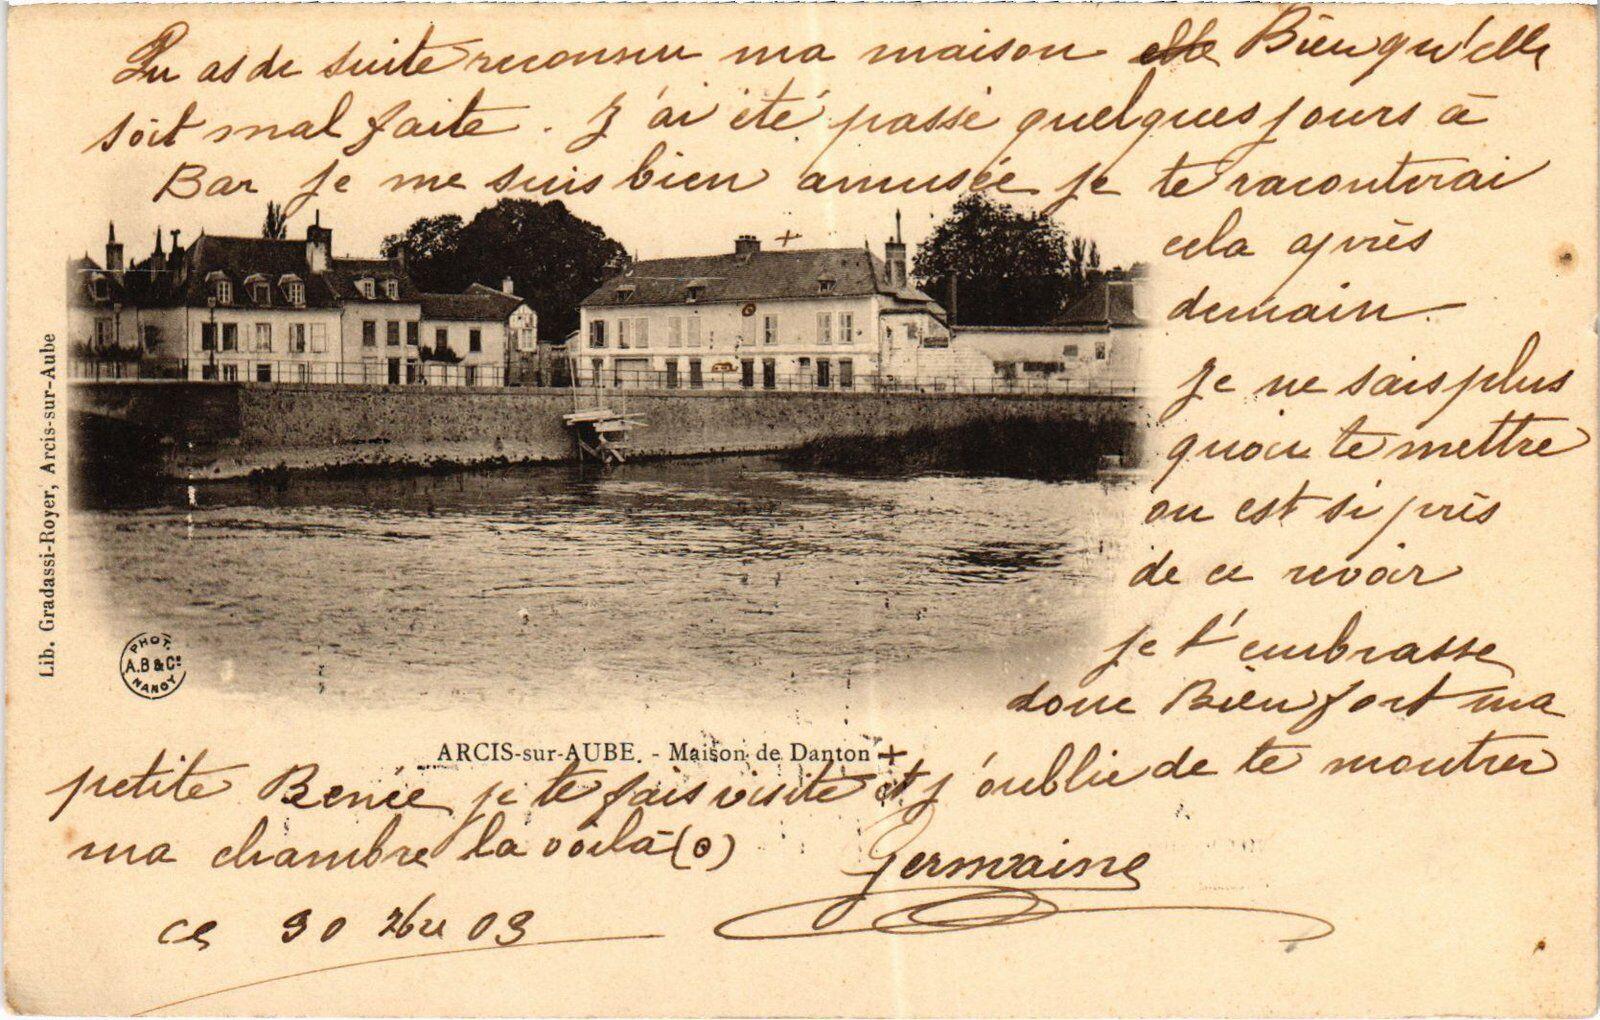 Tu as de suite reconnu ma maison elle Bien qu'elle
soit mal faite. J'ai été passé quelques jours à
Bar je me suis bien amusée je te raconterai
cela après
demain.
Je ne sais plus
quoi te mettre
on est si près
de ce revoir
je t'embrasse
donc Bien fort ma
petite Benée je te fais visite et j'oublie de te montrer
ma chambre la voilà (o)
Germaine
ce 30 Xbre 03
+
ARCIS-sur-AUBE. - Maison de Danton +
Lib. Gradassi-Royer, Arcis-sur-Aube
PHOT.
A.B & Cie
NANCY